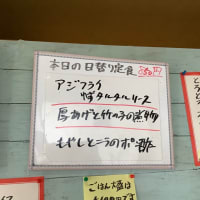 本日の日替り定食
アジフライ
タルタルソース
厚あげと竹の子の煮物
もやしとニラのポン酢
ごはん大盛は